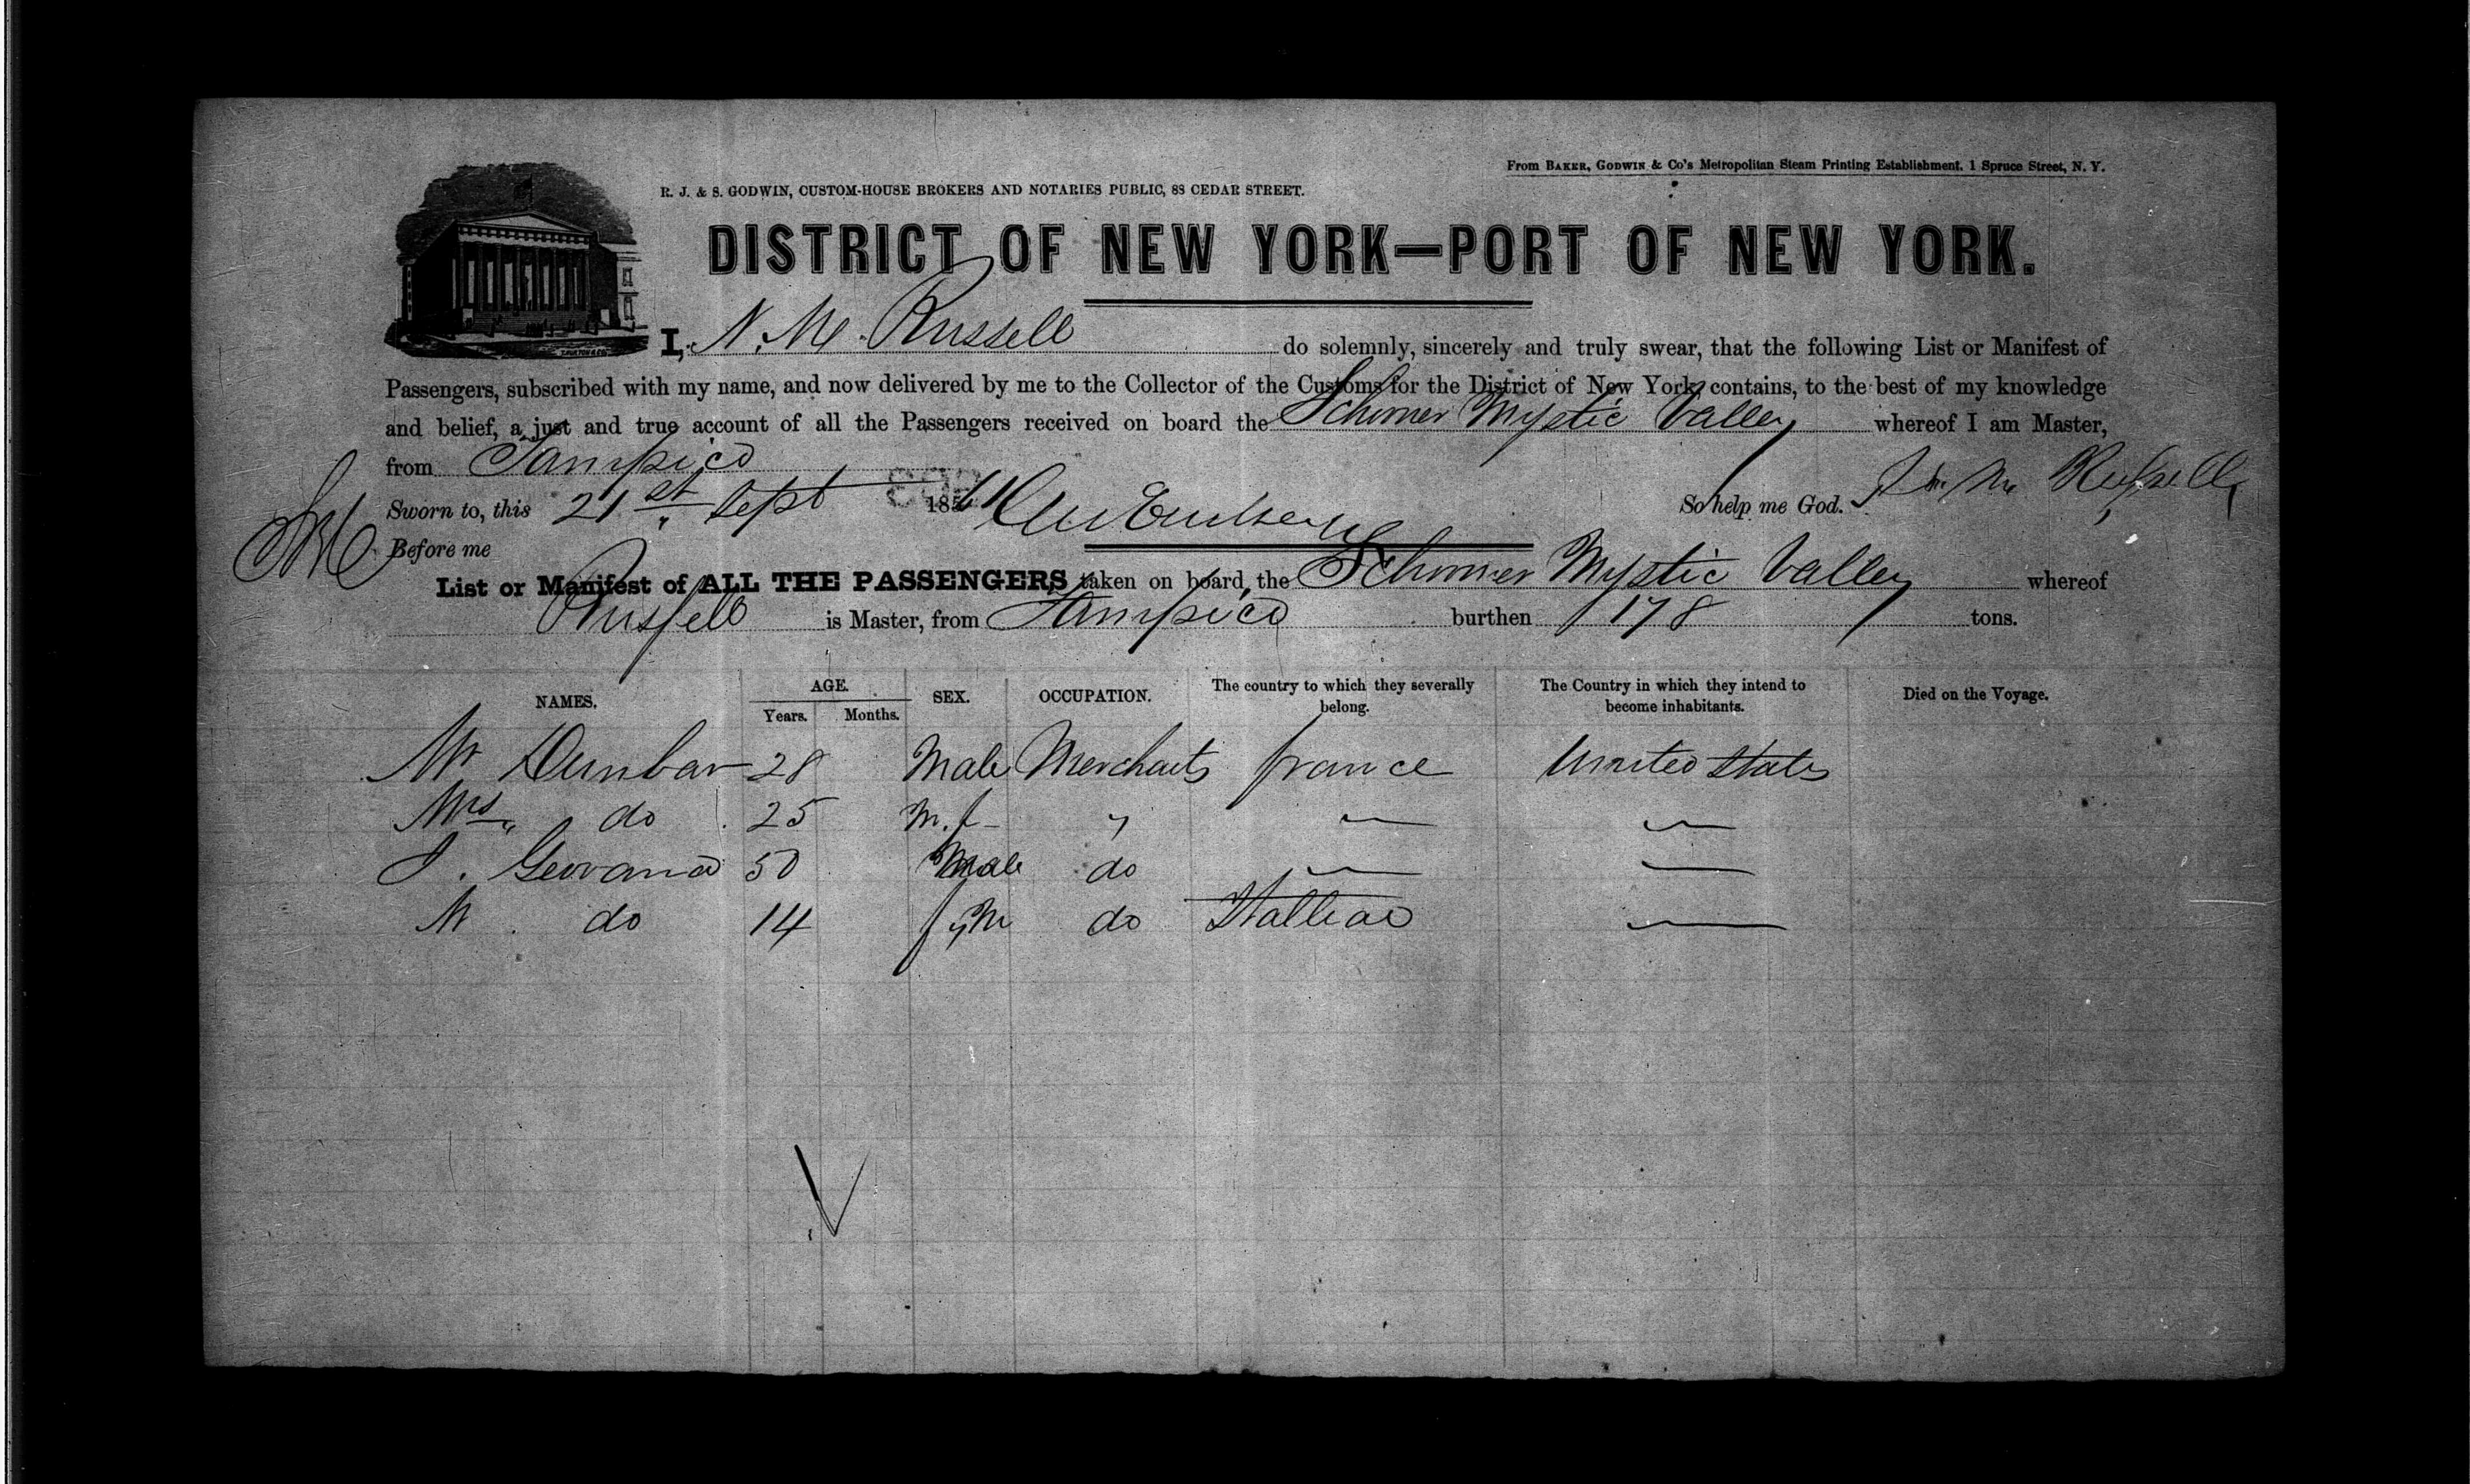 From BAKER, GODWIN & Co's Metropolitan Steam Printing Establishment, 1 Spruce Street, N. Y.
R. J. & S. GODWIN, CUSTOM-HOUSE BROKERS AND NOTARIES PUBLIC, 88 CEDAR STREET.
DISTRICT OF NEW YORK—PORT OF NEW YORK.
I, N. M. Russell do solemnly, sincerely and truly swear, that the following List or Manifest of
Passengers, subscribed with my name, and now delivered by me to the Collector of the Customs for the District of New York, contains, to the best of my knowledge
and belief, a just and true account of all the Passengers received on board the Schooner Mystic Valley whereof I am Master,
from Tampico
Sworn to, this 21st Sept 185 So help me God. M Russell
Before me
List or Manifest of ALL THE PASSENGERS taken on board, the Schooner Mystic Valley whereof
Russell is Master, from Tampico burthen 178 tons.
NAMES. AGE. Years. Months. SEX. OCCUPATION. The country to which they severally belong. The Country in which they intend to become inhabitants. Died on the Voyage.
Mr Dunbar 28 Male Merchants france United States
Mrs do 25 f " — —
J. Geovana 50 Male do — —
M do 14 f do —